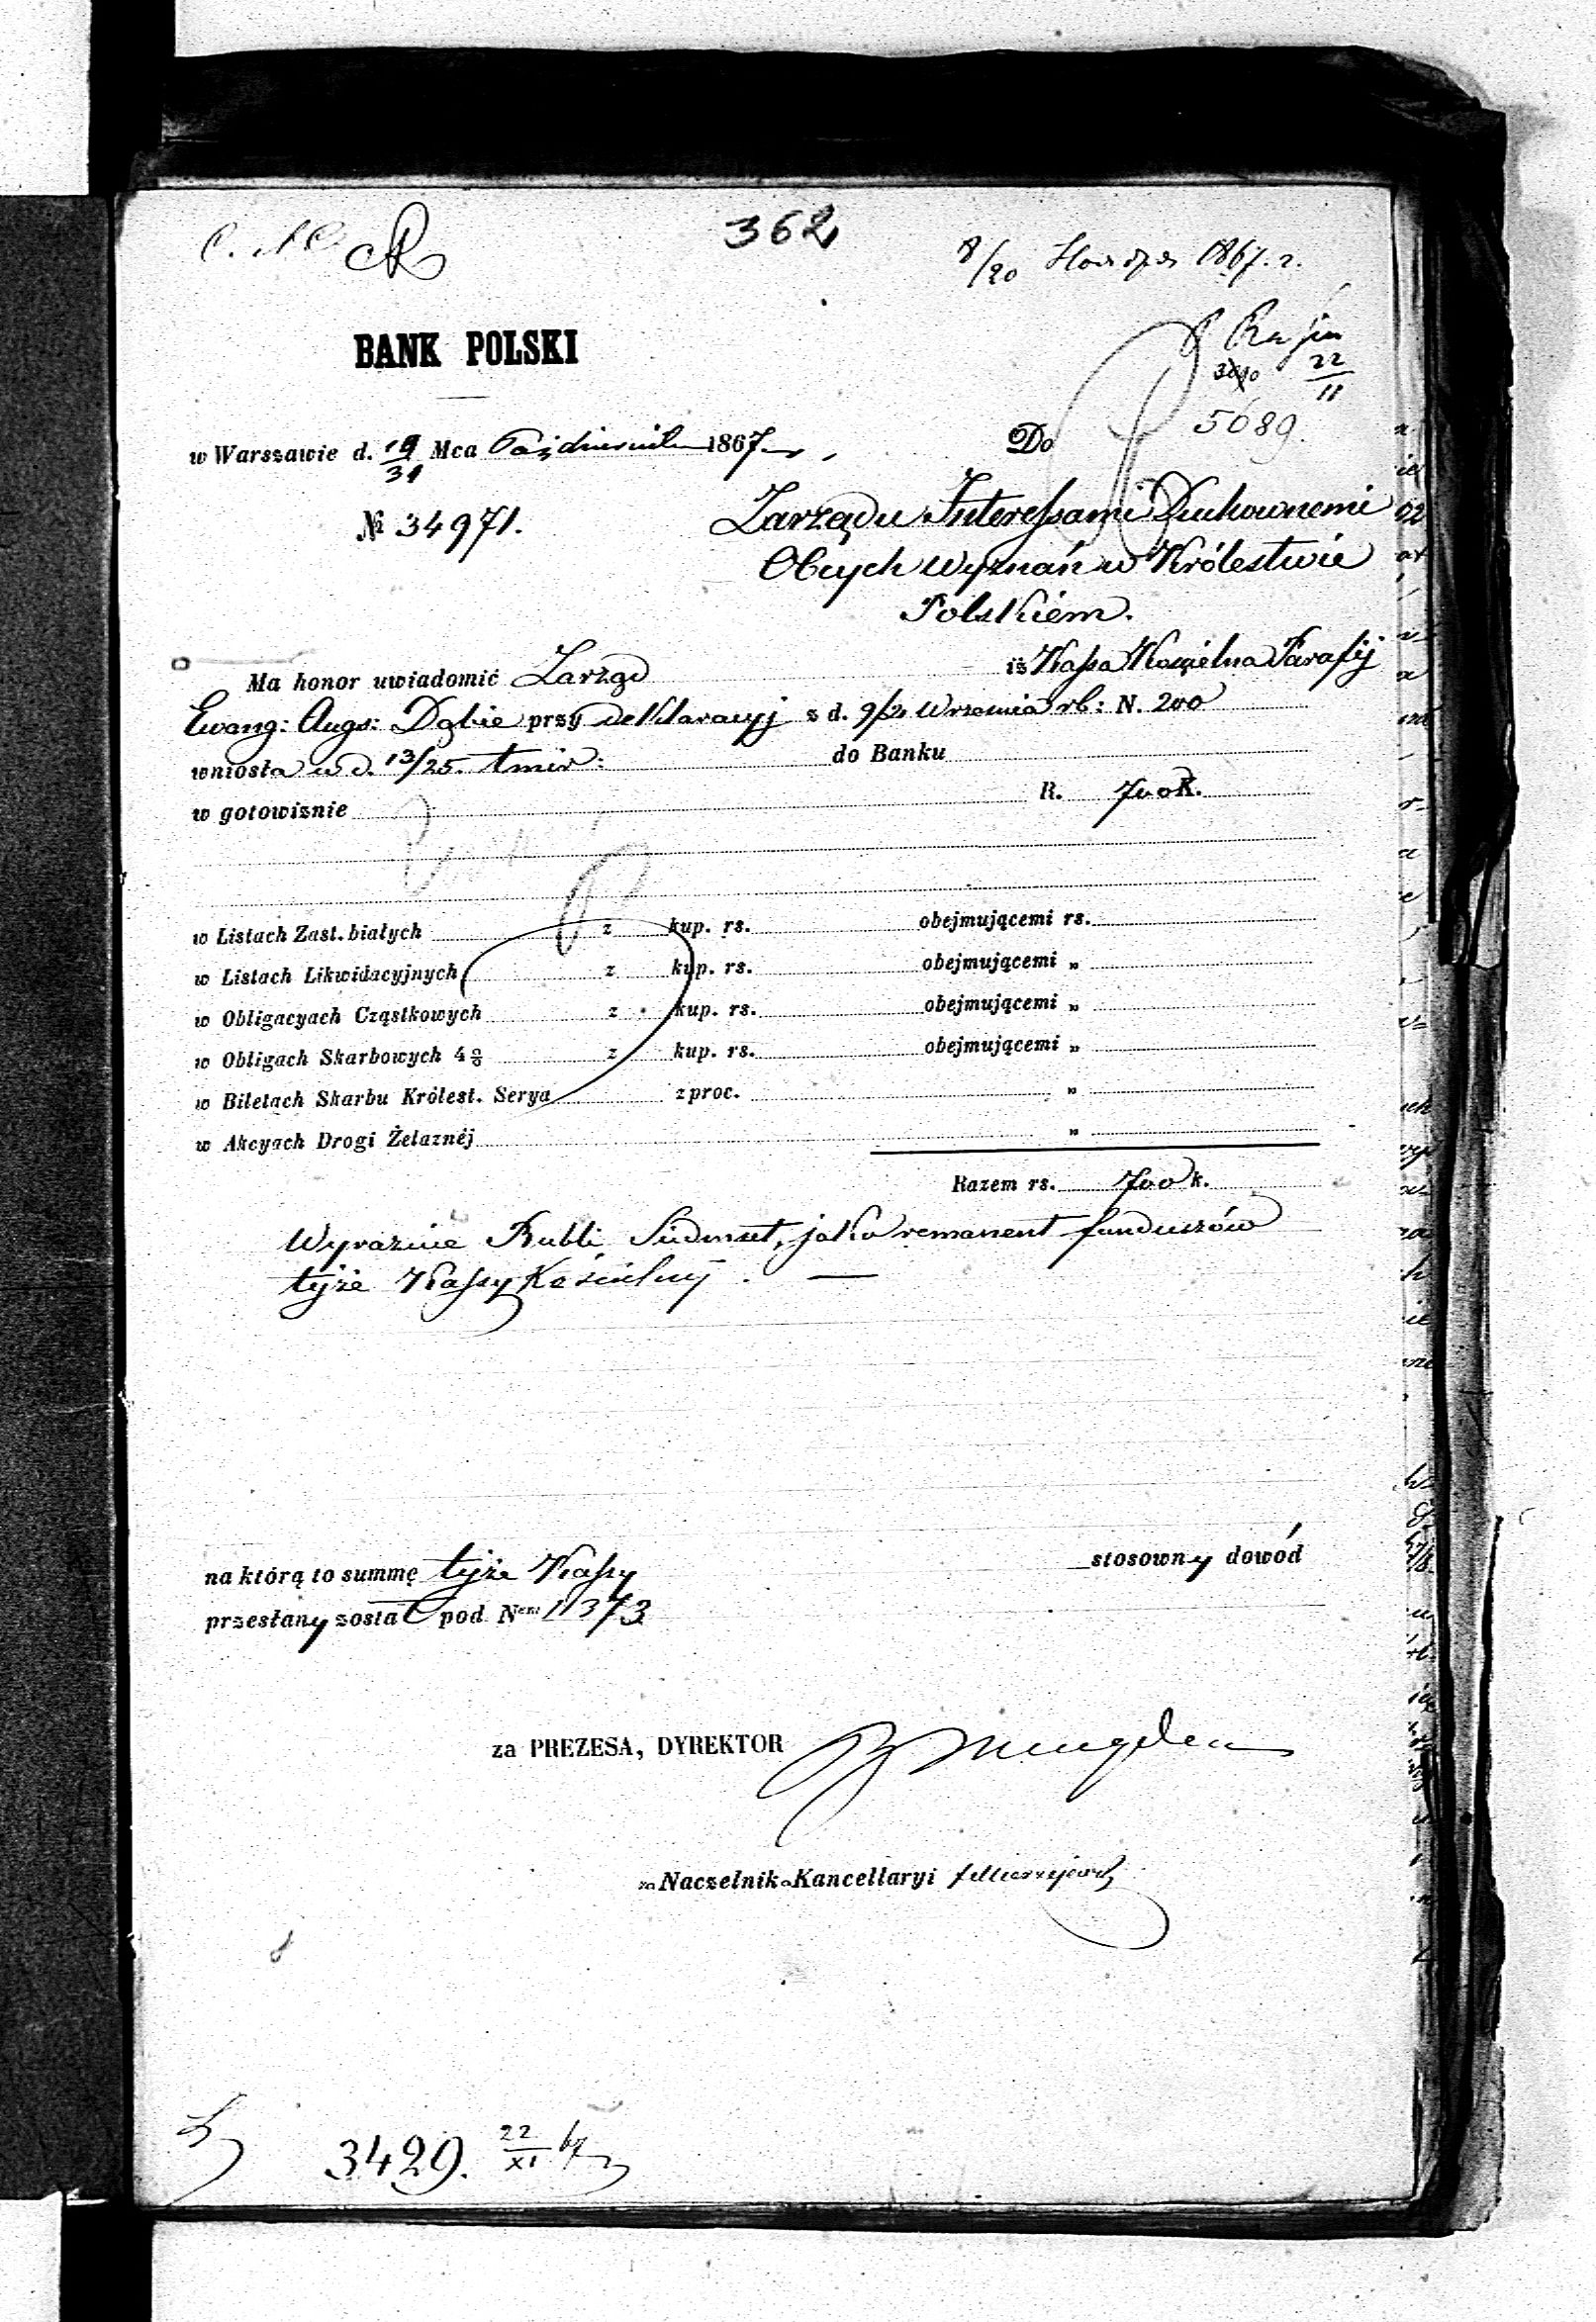 362
8/20 1867. r.
BANK POLSKI
22
11
5689.
w Warszawie d. 19/31 Mca Października 1867 r.
Do
№ 34971.
Zarządu Interessami Duchownemi
Obcych Wyznań w Królestwie
Polskiem.
Ma honor uwiadomić Zarząd iż Kassa Kościelna Parafij
Ewang: Augs: Dąbie przy deklaracyj z d. 9/21 Września rb: N. 200
wniosła w d. 13/25. tmir: do Banku
w gotowiznie R. 700 k.
w Listach Zast. białych z kup. rs. obejmującemi rs.
w Listach Likwidacyjnych z kup. rs. obejmującemi „
w Obligacyach Cząstkowych z kup. rs. obejmującemi „
w Obligach Skarbowych 4 % z kup. rs. obejmującemi „
w Biletach Skarbu Królest. Serya z proc. „
w Akcyach Drogi Żelaznéj „
Razem rs. 700 k.
Wyraznie Rubli Siedmset, jako remanent funduszów
tejże Kassy Kościelnej. —
na którą to summę tejże Kassy stosowny dowód
przesłany został pod Nem 11373
za PREZESA, DYREKTOR
za Naczelnika Kancellaryi
3429. 22/XI 67